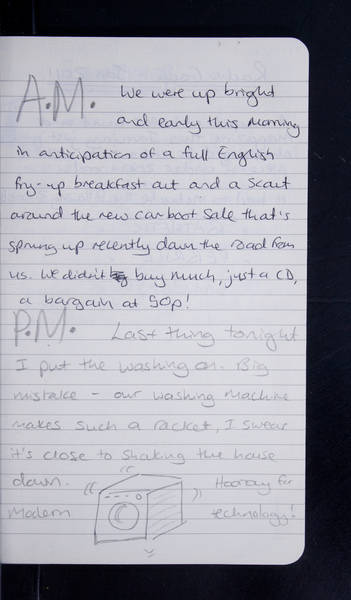 A.M. We were up bright
and early this morning
in anticipation of a full English
fry-up breakfast out and a scout
around the new car boot sale that's
sprung up recently down the road from
us. We didn't buy much, just a CD,
a bargain at 50p!
P.M. Last thing tonight
I put the washing on. Big
mistake - our washing machine
makes such a racket, I swear
it's close to shaking the house
down. Hooray for
modern technology!